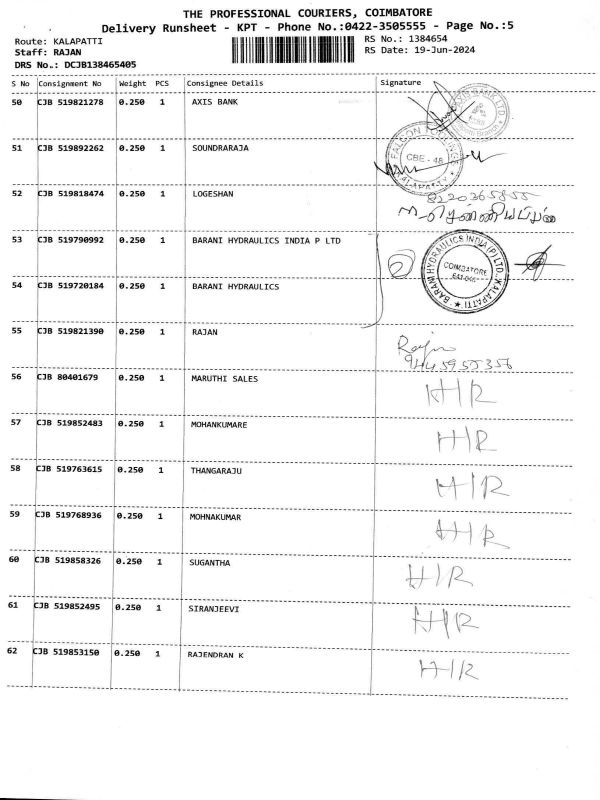 THE PROFESSIONAL COURIERS, COIMBATORE
Delivery Runsheet - KPT - Phone No.:0422-3505555 - Page No.:5
Route: KALAPATTI
Staff: RAJAN
DRS No.: DCJB138465405
RS No.: 1384654
RS Date: 19-Jun-2024
S No Consignment No Weight PCS Consignee Details Signature
50 CJB 519821278 0.250 1 AXIS BANK
AXIS BANK LTD.
51 CJB 519892262 0.250 1 SOUNDRARAJA
FALCON
CBE - 48
KALAPATTY
52 CJB 519818474 0.250 1 LOGESHAN
8220365855
53 CJB 519790992 0.250 1 BARANI HYDRAULICS INDIA P LTD
2
BARANI HYDRAULICS INDIA (P) LTD., KALAPATTI
COIMBATORE
54 CJB 519720184 0.250 1 BARANI HYDRAULICS
55 CJB 519821390 0.250 1 RAJAN
56 CJB 80401679 0.250 1 MARUTHI SALES H/R
57 CJB 519852483 0.250 1 MOHANKUMARE H/R
58 CJB 519763615 0.250 1 THANGARAJU H/R
59 CJB 519768936 0.250 1 MOHNAKUMAR H/R
60 CJB 519858326 0.250 1 SUGANTHA H/R
61 CJB 519852495 0.250 1 SIRANJEEVI H/R
62 CJB 519853150 0.250 1 RAJENDRAN K H/R